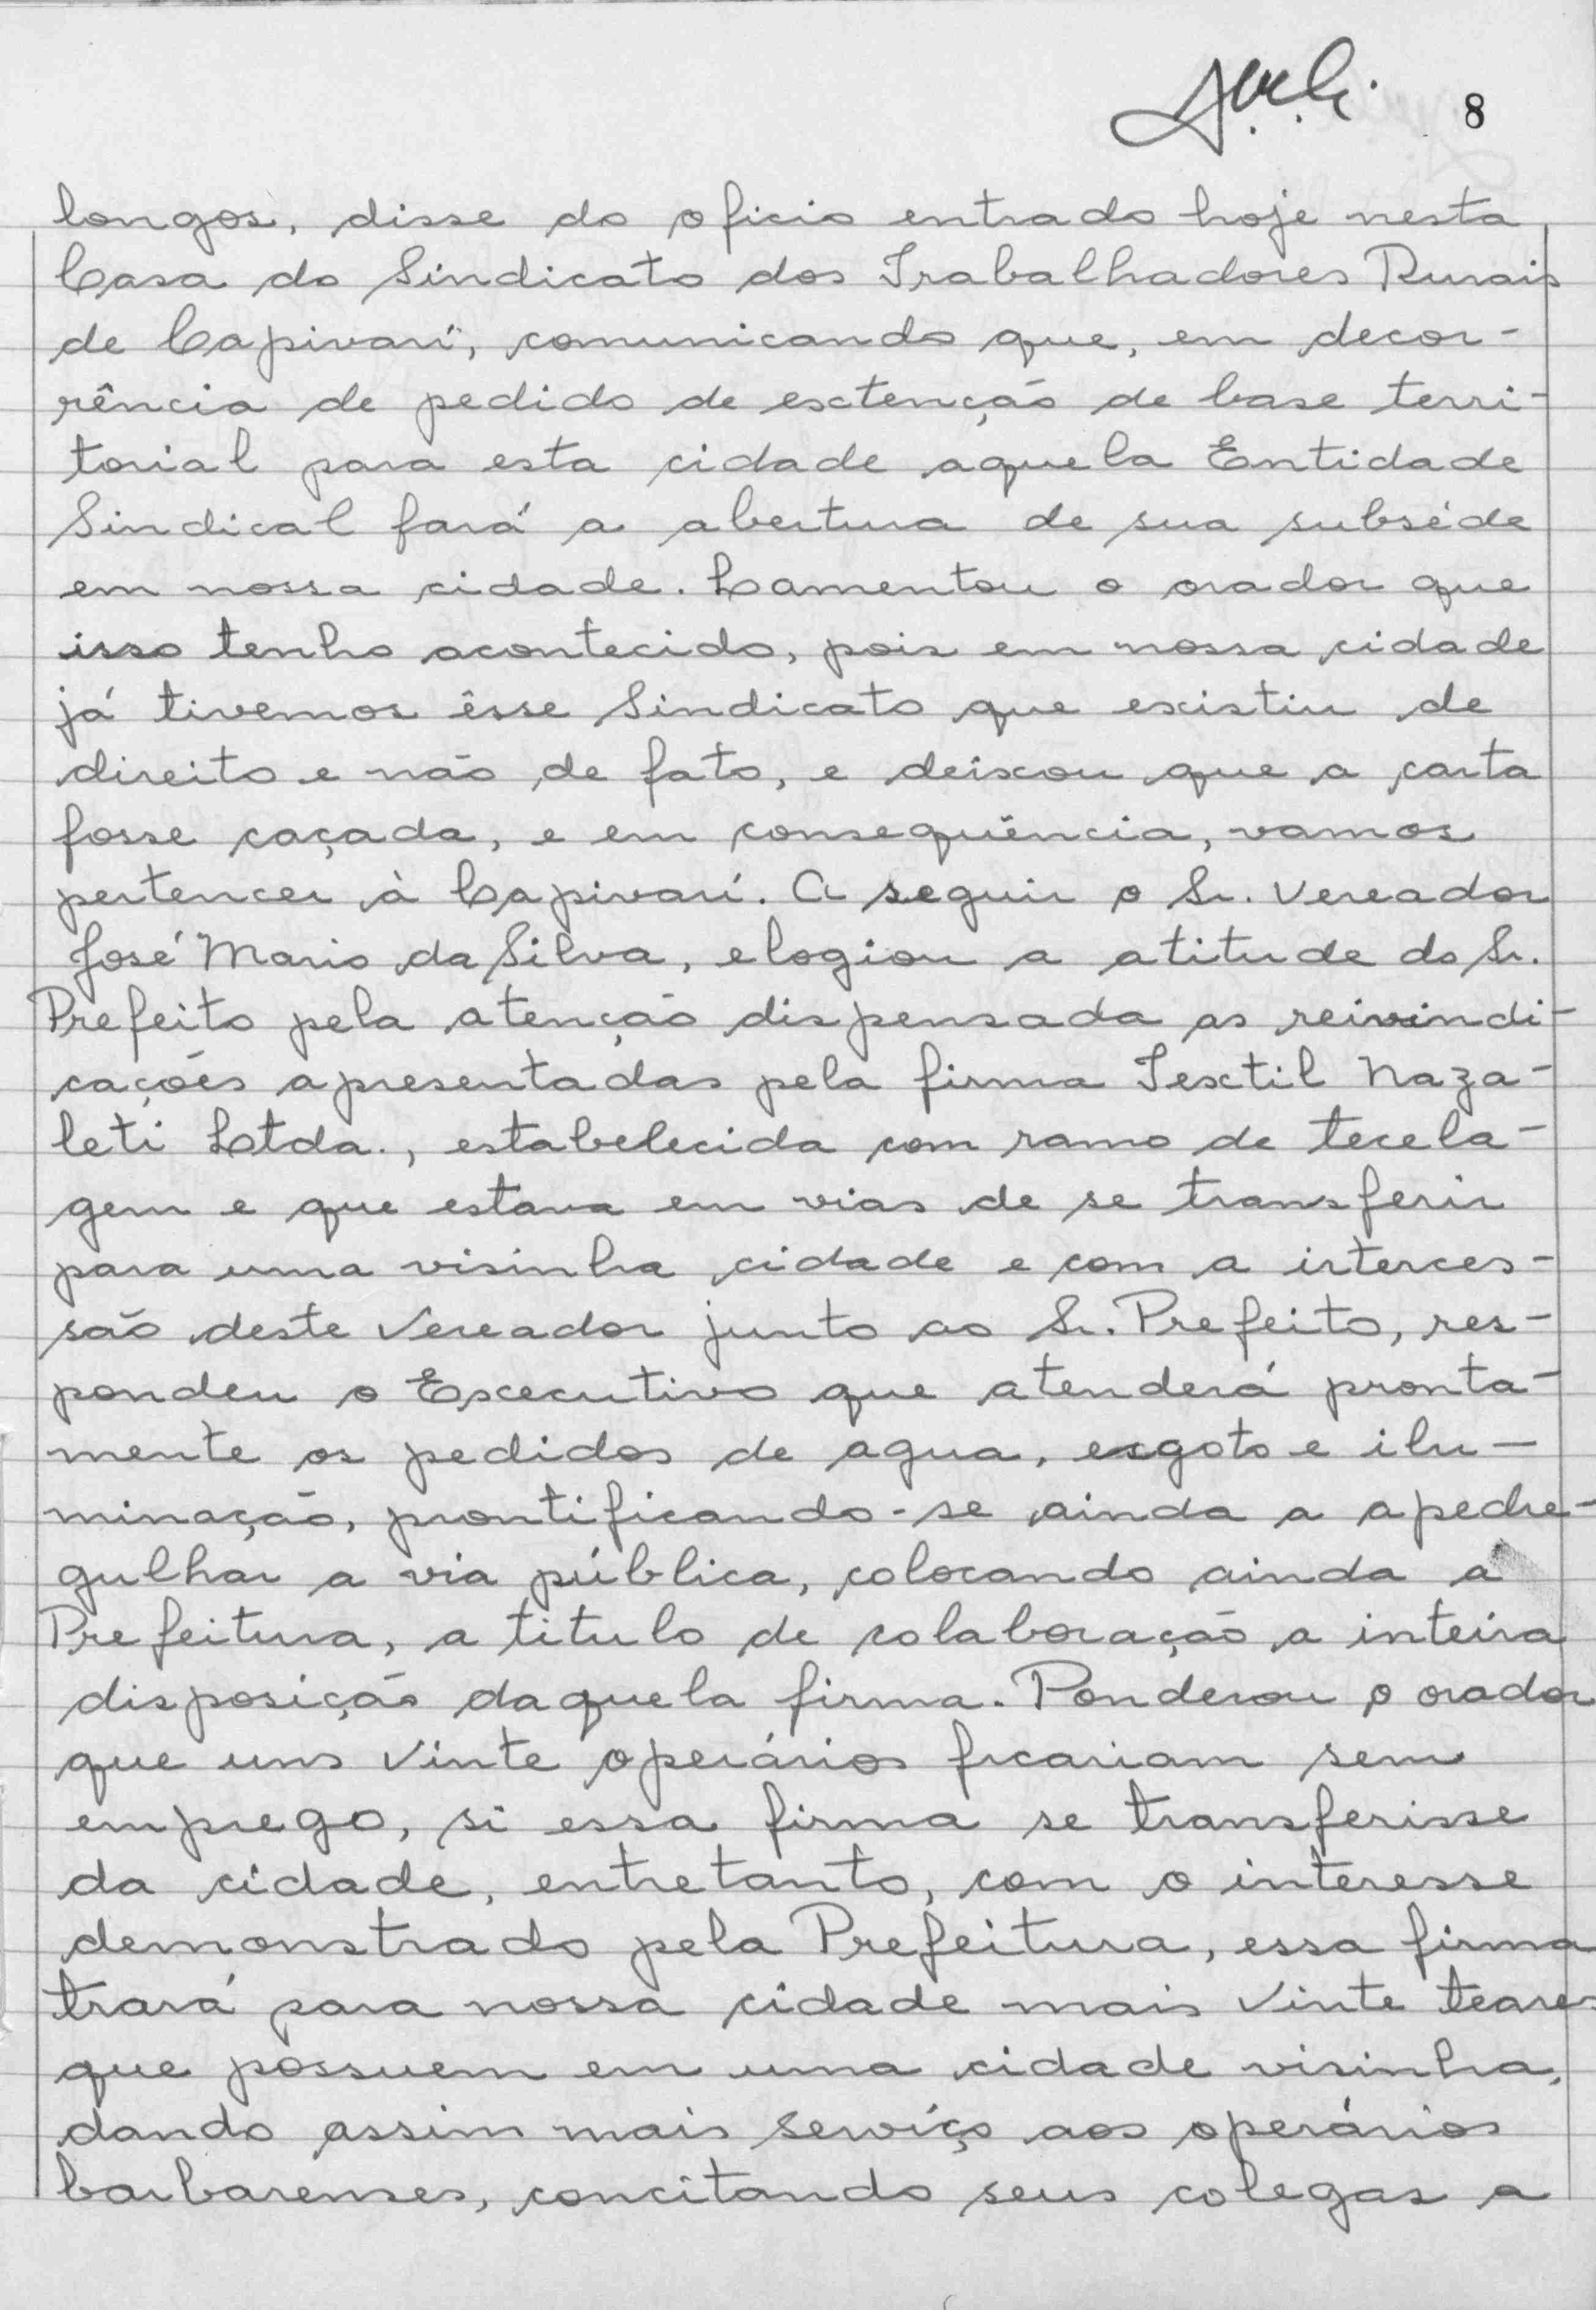 8
longos, disse do oficio entrado hoje nesta
Casa do Sindicato dos Trabalhadores Rurais
de Capivarí, comunicando que, em decor-
rência de pedido de extenção de base terri-
torial para esta cidade aquela Entidade
Sindical fará a abertura de sua subséde
em nossa cidade. Lamentou o orador que
isso tenho acontecido, pois em nossa cidade
já tivemos êsse Sindicato que existiu de
direito e não de fato, e deixou que a carta
fosse caçada, e em consequência, vamos
pertencer à Capivarí. A seguir o Sr. Vereador
José Mario da Silva, elogiou a atitude do Sr.
Prefeito pela atenção dispensada as reivindi-
cações apresentadas pela firma Textil Naza-
leti Ltda., estabelecida com ramo de tecela-
gem e que estava em vias de se transferir
para uma visinha cidade e com a interces-
são deste Vereador junto ao Sr. Prefeito, res-
pondeu o Executivo que atenderá pronta-
mente os pedidos de agua, esgoto e ilu-
minação, prontificando-se ainda a apedre-
gulhar a via pública, colocando ainda a
Prefeitura, a titulo de colaboração a inteira
disposição daquela firma. Ponderou o orador
que uns vinte operários ficariam sem
emprego, si essa firma se transferisse
da cidade, entretanto, com o interesse
demonstrado pela Prefeitura, essa firma
trará para nossa cidade mais vinte teares
que possuem em uma cidade visinha,
dando assim mais serviço aos operários
barbarenses, concitando seus colegas a